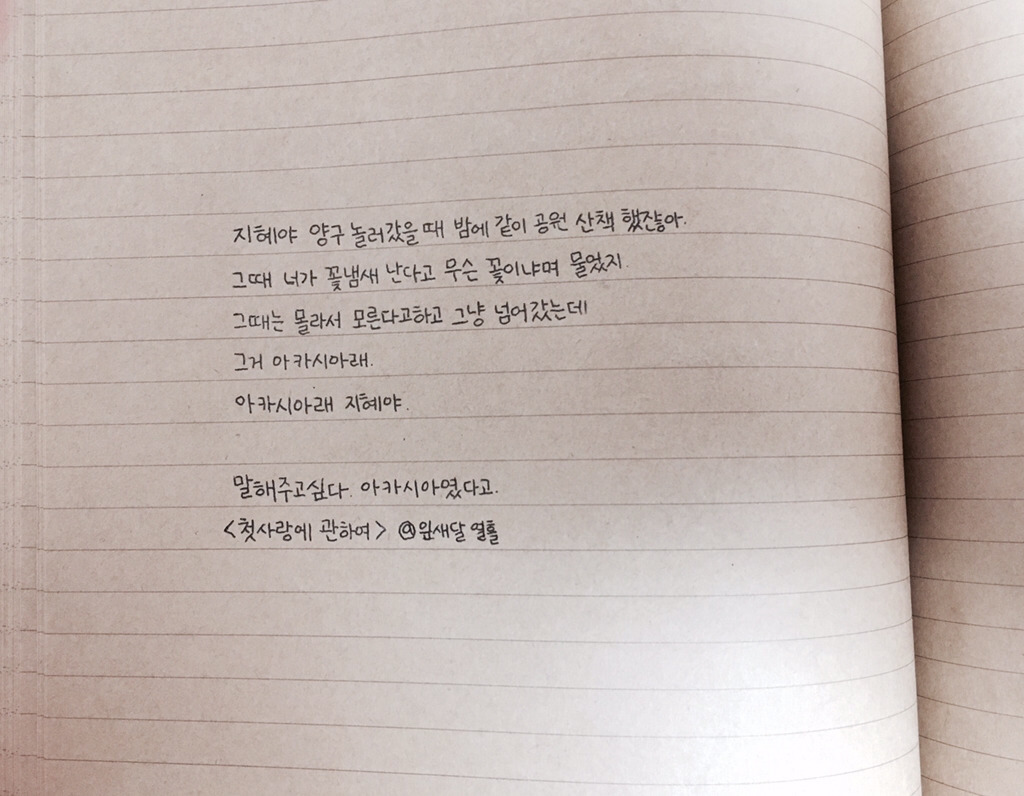 지혜야 양구 놀러갔을때 밤에 같이 공원 산책 했잖아.
그때 너가 꽃냄새 난다고 무슨 꽃이냐며 물었지.
그때는 몰라서 모른다고하고 그냥 넘어갔는데
그거 아카시아래.
아카시아래 지혜야.
말해주고싶다. 아카시아였다고.
<첫사랑에 관하여> @잎새달 열흘